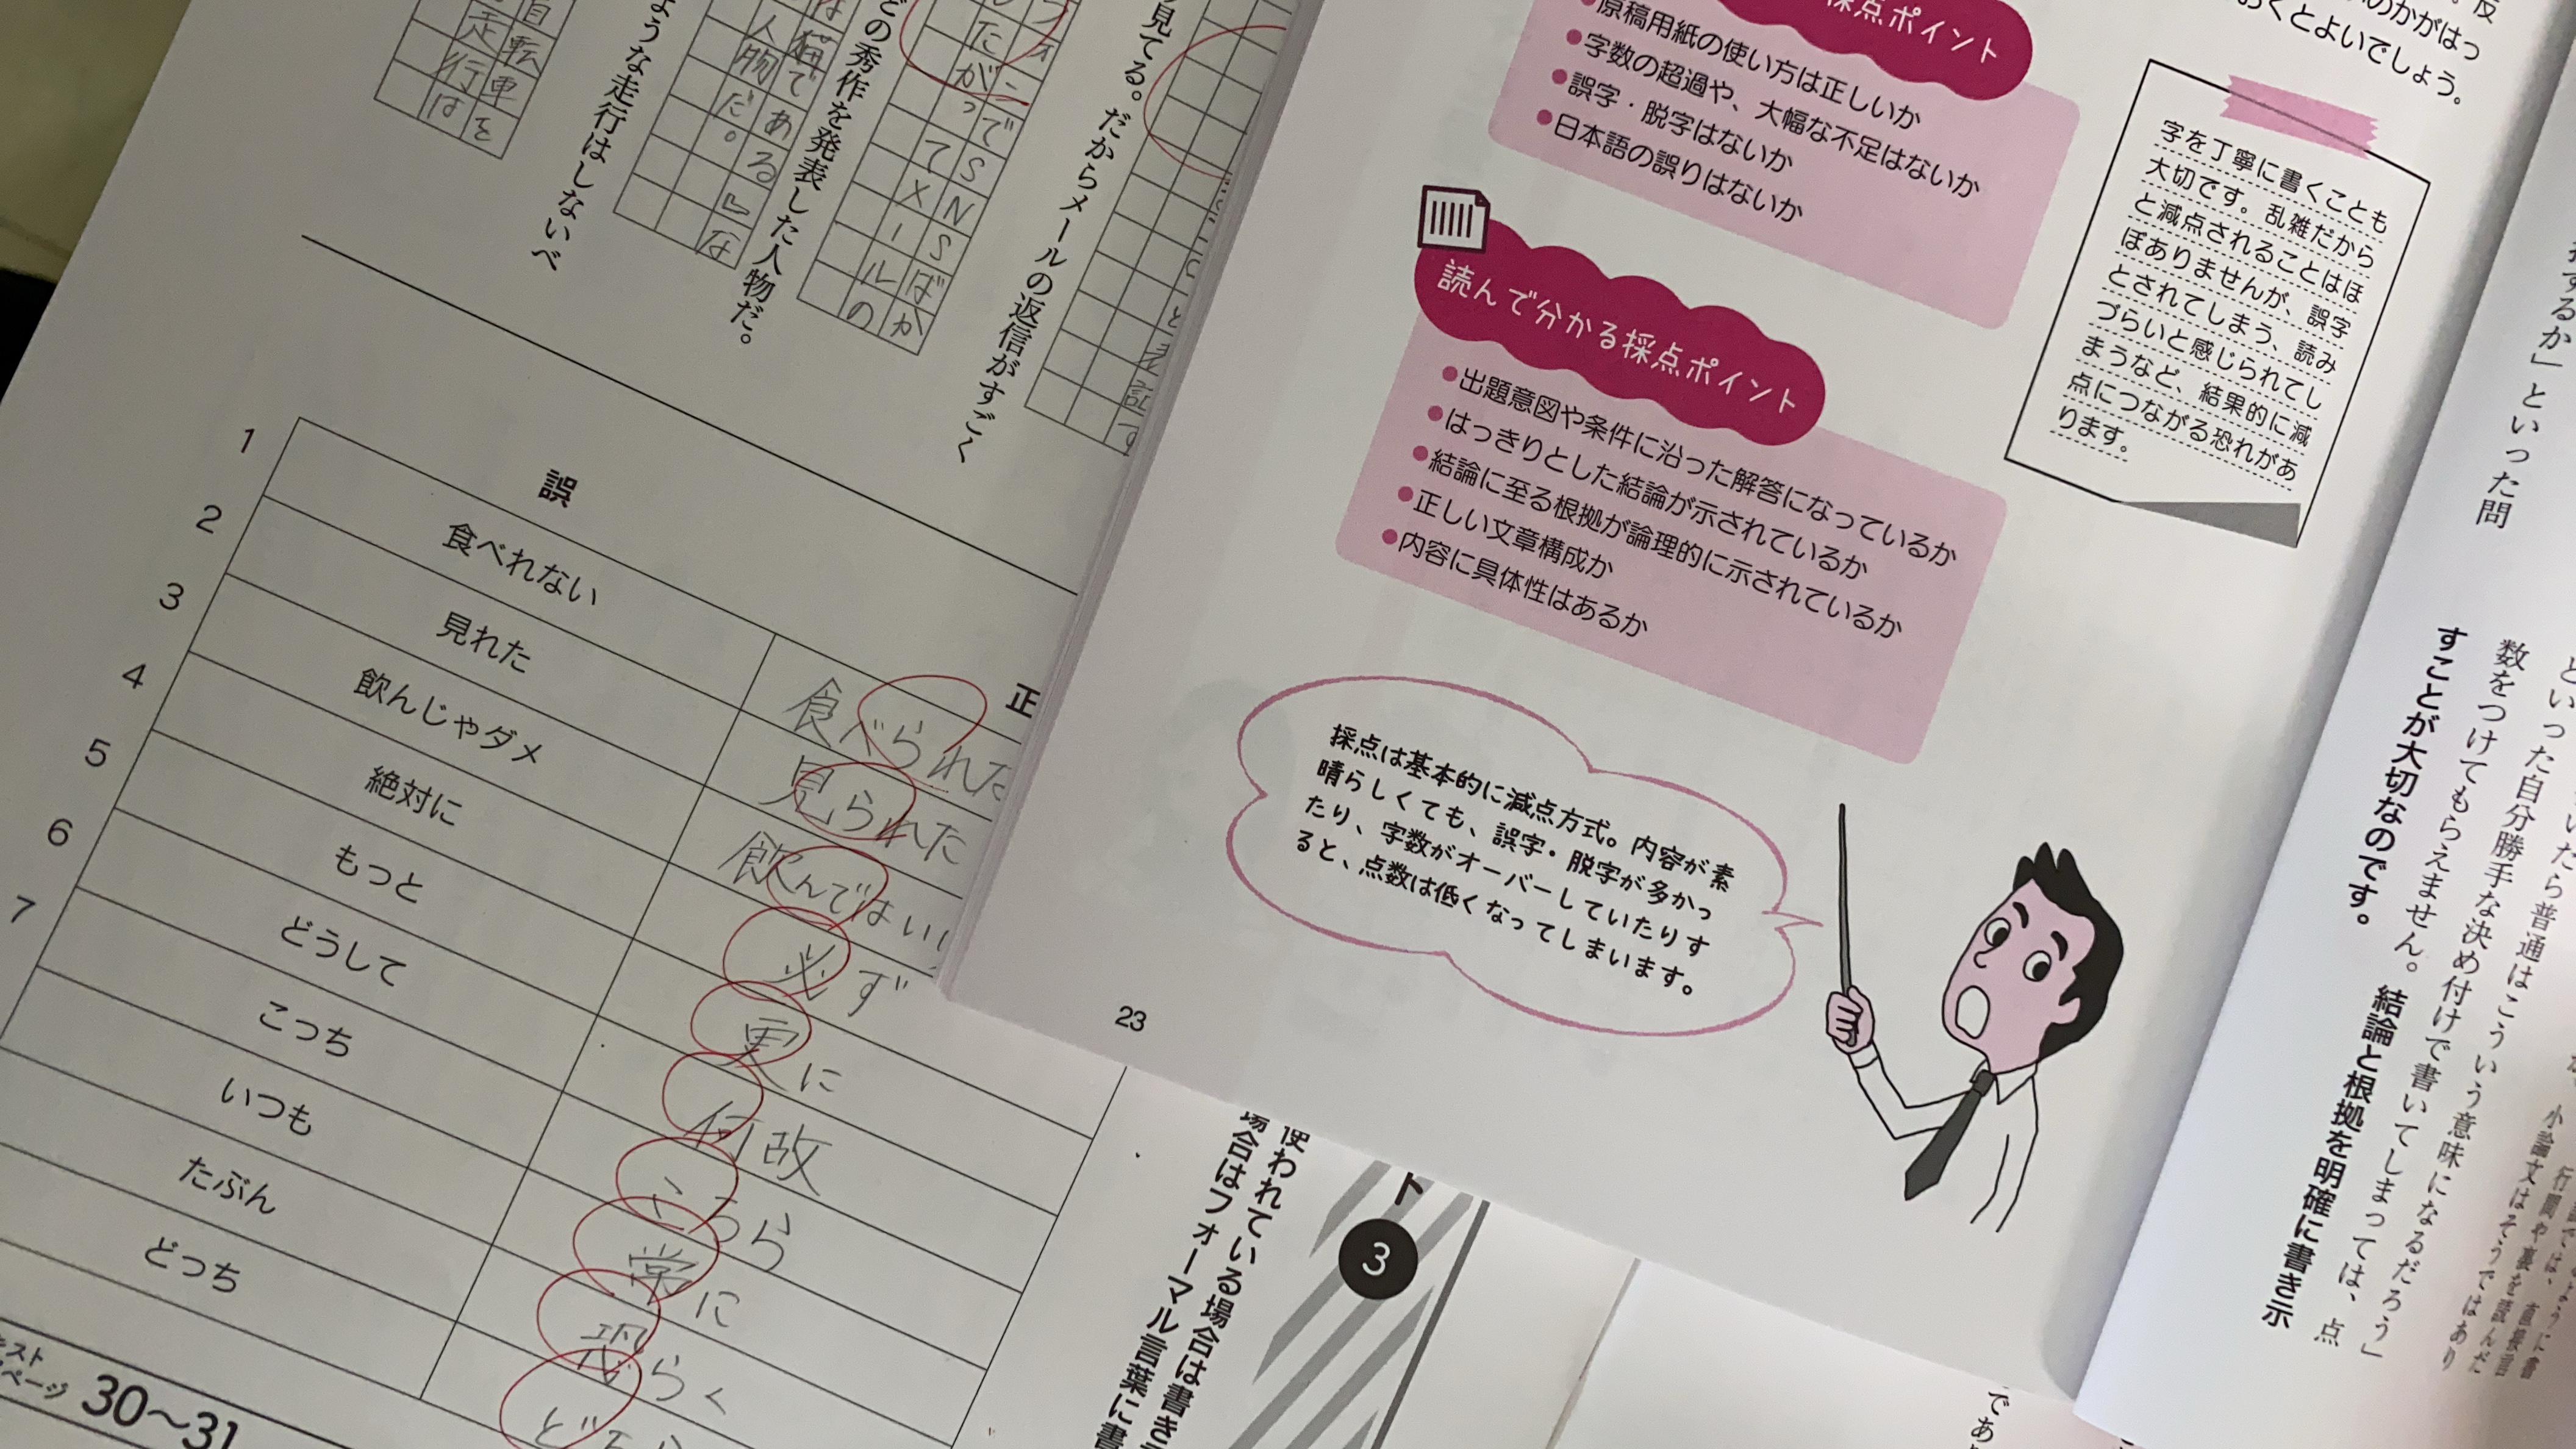 自転車を
走行は
ような走行はしないべ
は猫である』な
人物だ。
どの秀作を発表した人物だ。
でSNSばか
したがって
メールの
見てる。だからメールの返信がすごく
誤
正
1
食べれない
食べられな
2
見れた
見られた
3
飲んじゃダメ
飲んではい
4
絶対に
必ず
5
もっと
更に
6
どうして
何故
7
こっち
こちら
いつも
常に
たぶん
恐らく
どっち
30〜31
採点ポイント
●原稿用紙の使い方は正しいか
●字数の超過や、大幅な不足はないか
●誤字・脱字はないか
●日本語の誤りはないか
読んで分かる採点ポイント
●出題意図や条件に沿った解答になっているか
●はっきりとした結論が示されているか
●結論に至る根拠が論理的に示されているか
●正しい文章構成か
●内容に具体性はあるか
採点は基本的に減点方式。内容が素
晴らしくても、誤字・脱字が多かっ
たり、字数がオーバーしていたりす
ると、点数は低くなってしまいます。
23
のかがはっ
おくとよいでしょう。
字を丁寧に書くことも
大切です。乱雑だから
と減点されることはほ
ぼありませんが、誤字
とされてしまう、読み
づらいと感じられてし
まうなど、結果的に減
点につながる恐れがあ
ります。
するか」といった問
いたら普通はこういう意味になるだろう」
といった自分勝手な決め付けで書いてしまっては、点
数をつけてもらえません。結論と根拠を明確に書き示
すことが大切なのです。
使われている場合は書き
場合はフォーマル言葉に書
ト
3